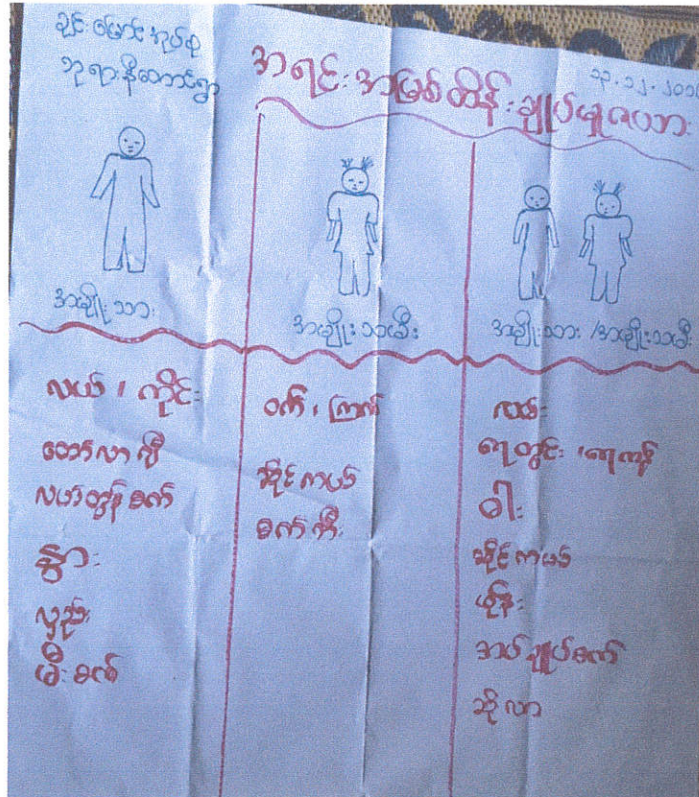 ချင်းမြောင်းအုပ်စု
ဘုရားနီတောင်ရွာ
အရင်းအမြစ်ထိန်းချုပ်မှုဇယား
အမျိုးသား
အမျိုးသမီး
အမျိုးသား /အမျိုးသမီး
လယ် ၊ ကိုင်း
ထော်လာဂျီ
လယ်ထွန်စက်
နွား
လှည်း
မီးစက်
ဝက် ၊ ကြက်
ဆိုင်ကယ်
စက်ဘီး
လမ်း
ရေတွင်း ၊ရေကန်
ဓါး
ဆိုင်ကယ်
ဖုန်း
အပ်ချုပ်စက်
ဆိုလာ